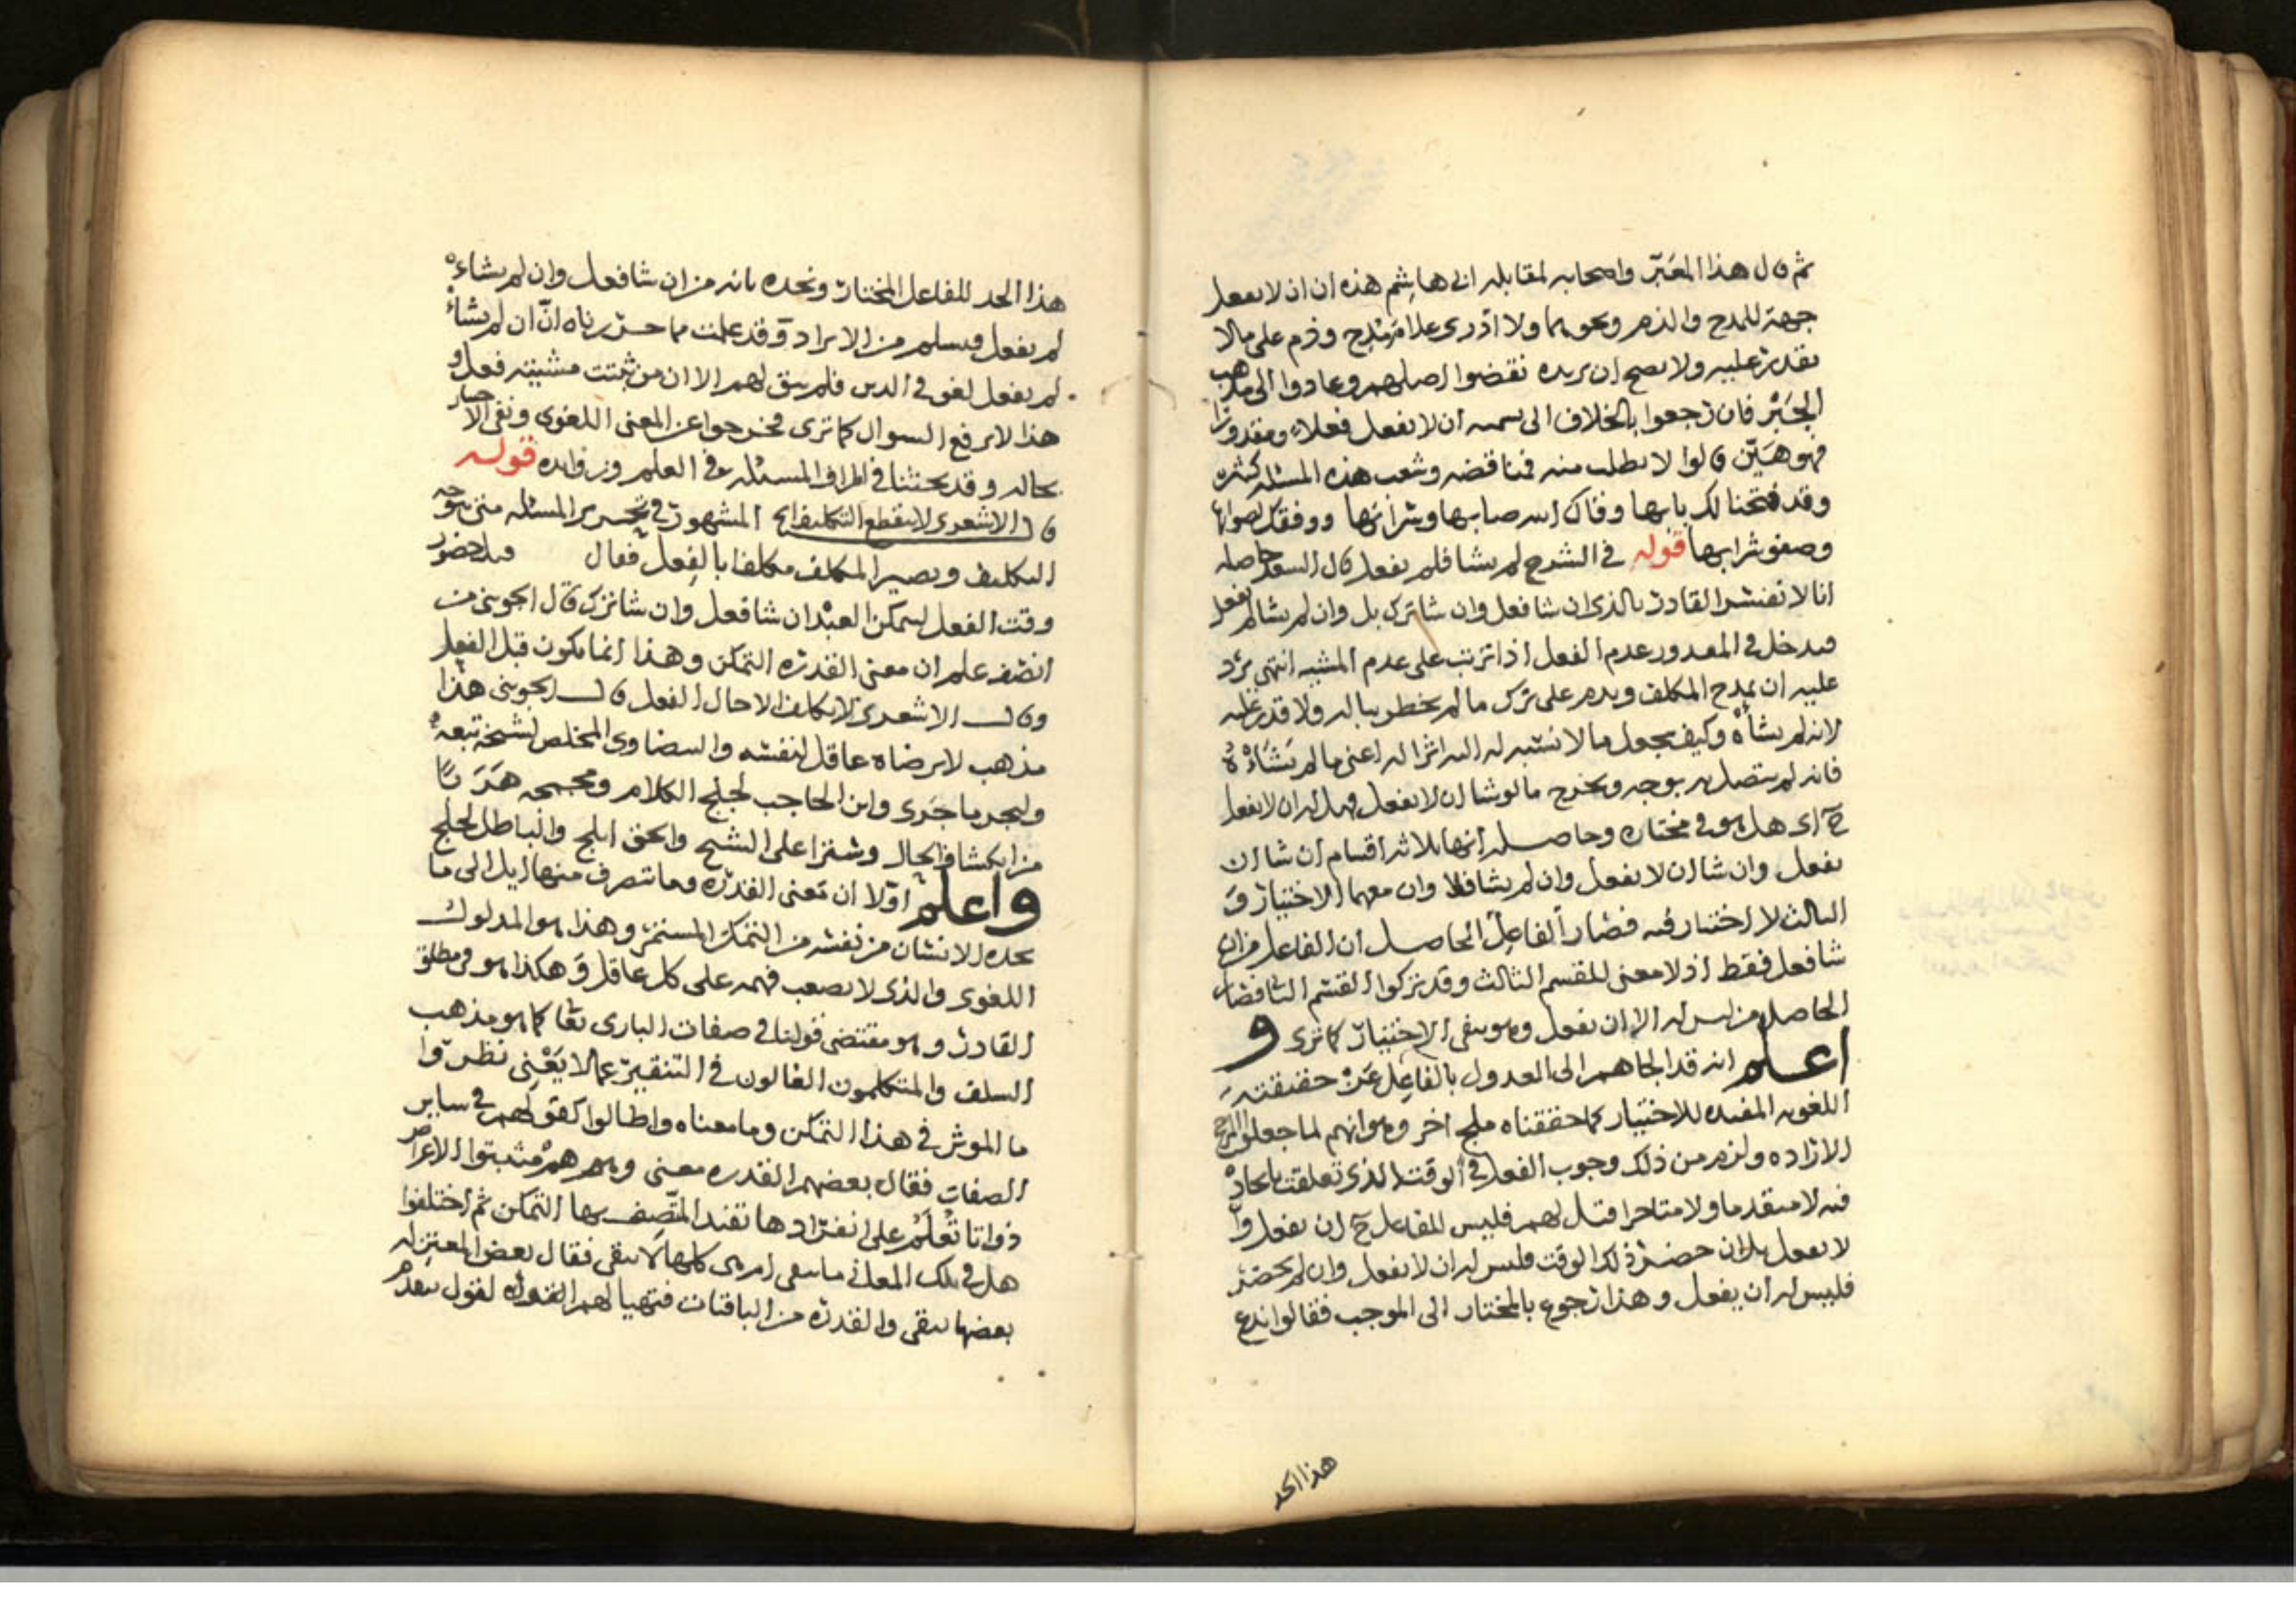 ثم قال هذا المعبر واصحابه لمقابله ابي هاشم هذه ان ان لا يفعل
جهة للمدح والذم ونحوهما ولا ادري علام مدح وذم على ما لا
يقدر عليه ولا يصح ان يريده نقضوا اصلهم وعادوا الى مذهب
الجبر فان رجعوا بالخلاف الى تسميه ان لا يفعل فعلا ومقدورا
فهو هين قالوا لا يطلب منه فناقضه وشعب هذه المسئله كثيره
وقد فتحنا لك بابها وفاك الله صابها وشرانها ووفقك لصوابها
وصفو شرابها قوله في الشرح لم يشا فلم يفعل قال السعد حاصله
انا لا نفسر القادر بالذي ان شا فعل وان شا ترك بل وان لم يشا لم يفعل
فيدخل في المقدور عدم الفعل اذا ترتب على عدم المشيه انتهى يرد
عليه ان يمدح المكلف ويذم على ترك ما لم يخطر بباله ولا قدر عليه
لانه لم يشأه وكيف يجعل ما لا نسبه له اليه اثرا له اعني ما لم يشاءه
فانه لم يتصل به بوجه ويخرج ما لو شا ان لا يفعل فهل له ان لا يفعل
ح اي هل هو في مختاره وحاصله انها ثلاثه اقسام ان شا ان
يفعل وان شا ان لا يفعل وان لم يشا فلا وان معهما الاختيار و
الثالث لا اختيار فيه فصار الفاعل الحاصل ان الفاعل من ان
شا فعل فقط اذ لا معنى للقسم الثالث وقد تركوا القسم الثا فصار
الحاصل من ليس له الا ان يفعل وهو ينفي الاختيار كما ترى و
اعلم انه قد الجاهم الى العدول بالفاعل عن حقيقته
اللغويه المفيده للاختيار كما حققناه ملج اخر وهو انهم لما جعلوا المرجح
الاراده ولزم من ذلك وجوب الفعل في الوقت الذي تعلقت بايجاده
فيه لا متقدما ولا متاخرا قيل لهم فليس للفاعل ح ان يفعل وا
لا يفعل بل ان حضر ذلك الوقت فليس له ان لا يفعل وان لم يحضر
فليس له ان يفعل وهذا رجوع بالمختار الى الموجب فقالوا ندع
هذا الحد
هذا الحد للفاعل المختار ونحده بانه من ان شا فعل وان لم يشاءه
لم يفعل ويسلم من الايراد وقد علمت مما حررناه ان ان لم يشأ
لم يفعل لغو في الدين فلم يبق لهم الا ان من ثبتت مشيته فعل و
هذا لا يرفع السوال كما ترى فخرجوا عن المعنى اللغوي ونفي الاختيار
بحاله وقد بحثنا في اطراف المسئله في العلم وزوايده قوله
قال الاشعري لا ينقطع التكليف الخ المشهور في تحرير المسئله متى يتوجه
التكليف ويصير المكلف مكلفا بالفعل فقال قبل حضور
وقت الفعل ليمكن العبد ان شا فعل وان شا ترك قال الجويني من
انصف علم ان معنى القدره التمكن وهذا انما يكون قبل الفعل
وقال الاشعري لا يكلف الا حال الفعل قال الجويني هذا
مذهب لا يرضاه عاقل لنفسه والبيضاوي المخلص لشيخه تبعه
وليجر ما جرى وابن الحاجب لجلج الكلام ومجمجه هربا
من انكشاف الحال وسترا على الشيخ والحق ابلج والباطل لجلج
واعلم اولا ان معنى القدره وما تتصرف منها ايل الى ما
يجده الانسان من نفسه من التمكن المستمر وهذا هو المدلول
اللغوي والذي لا يصعب فهمه على كل عاقل وهكذا هو في مطلق
القادر وهو مقتضى قولنا في صفات الباري تعا كما هو مذهب
السلف والمتكلمون الغالون في التنقير عما لا يعني نظروا
ما الموثر في هذا التمكن وما معناه واطالوا كقولهم في ساير
الصفات فقال بعضهم القدره معنى وهم هم مثبتوا الاعراض
ذواتا تعلم على انفرادها تفيد المتصف بها التمكن ثم اختلفوا
هل في تلك المعاني ما يبقى ام هي كلها لا يبقى فقال بعض المعتزله
بعضها يبقى والقدره من الباقيات فتهيا لهم القول لقول بتقدم